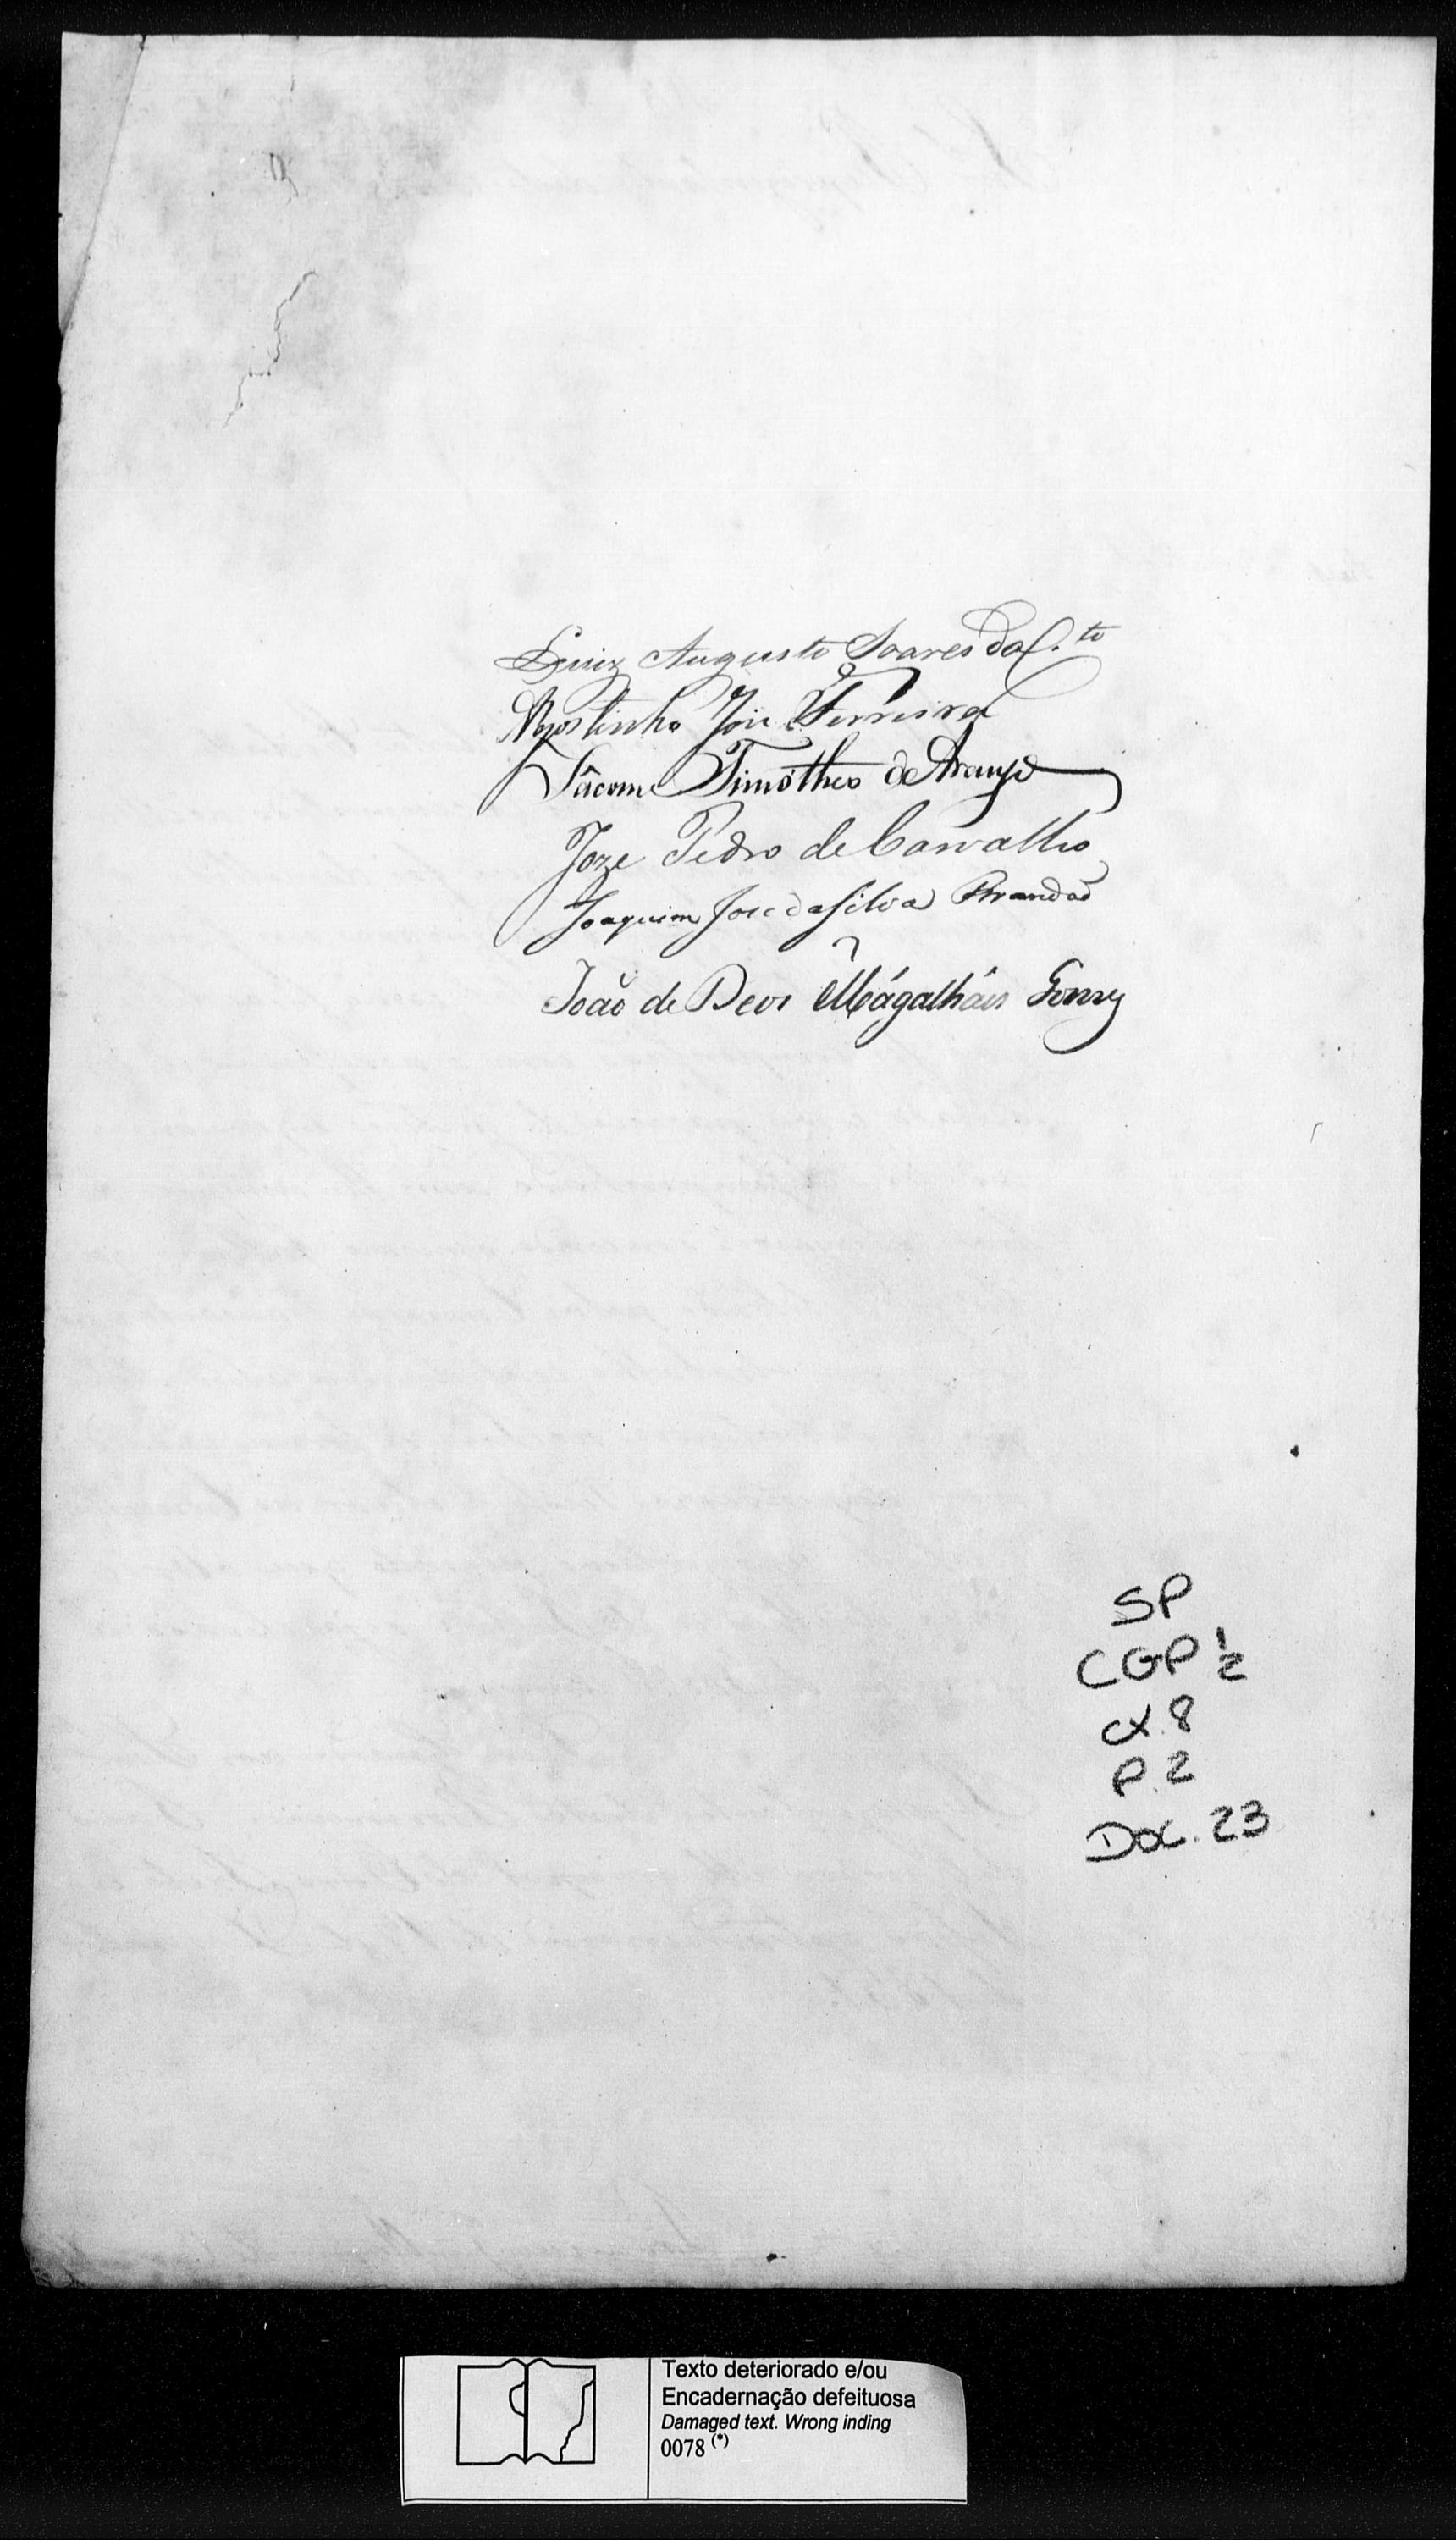 Luiz Augusto Soares da C.to
Agostinho Joze Ferreira
Sâcome Timótheo de Araujo
Joze Pedro de Carvalho
Joaquim Jose da Silva Brandaõ
Joaõ de Deos Mágalhâis Gomes
SP
CGP 1/2
CX. 8
P. 2
Doc. 23
Texto deteriorado e/ou
Encadernação defeituosa
Damaged text. Wrong inding
0078 (*)